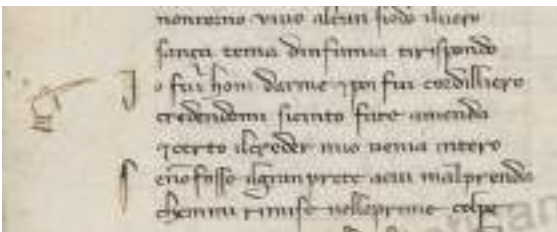 non torno vivo alcun siodo iluero
sança tema dinfamia tirispondo
I o fui hom darme ꝛ poi fui cordilliero
credendomi sicinto fare amenda
ꝛ certo ilcreder mio uenia intero
S e no fosse ilgran prete acui mal prenda
che mmi rimise nelleprime colpe